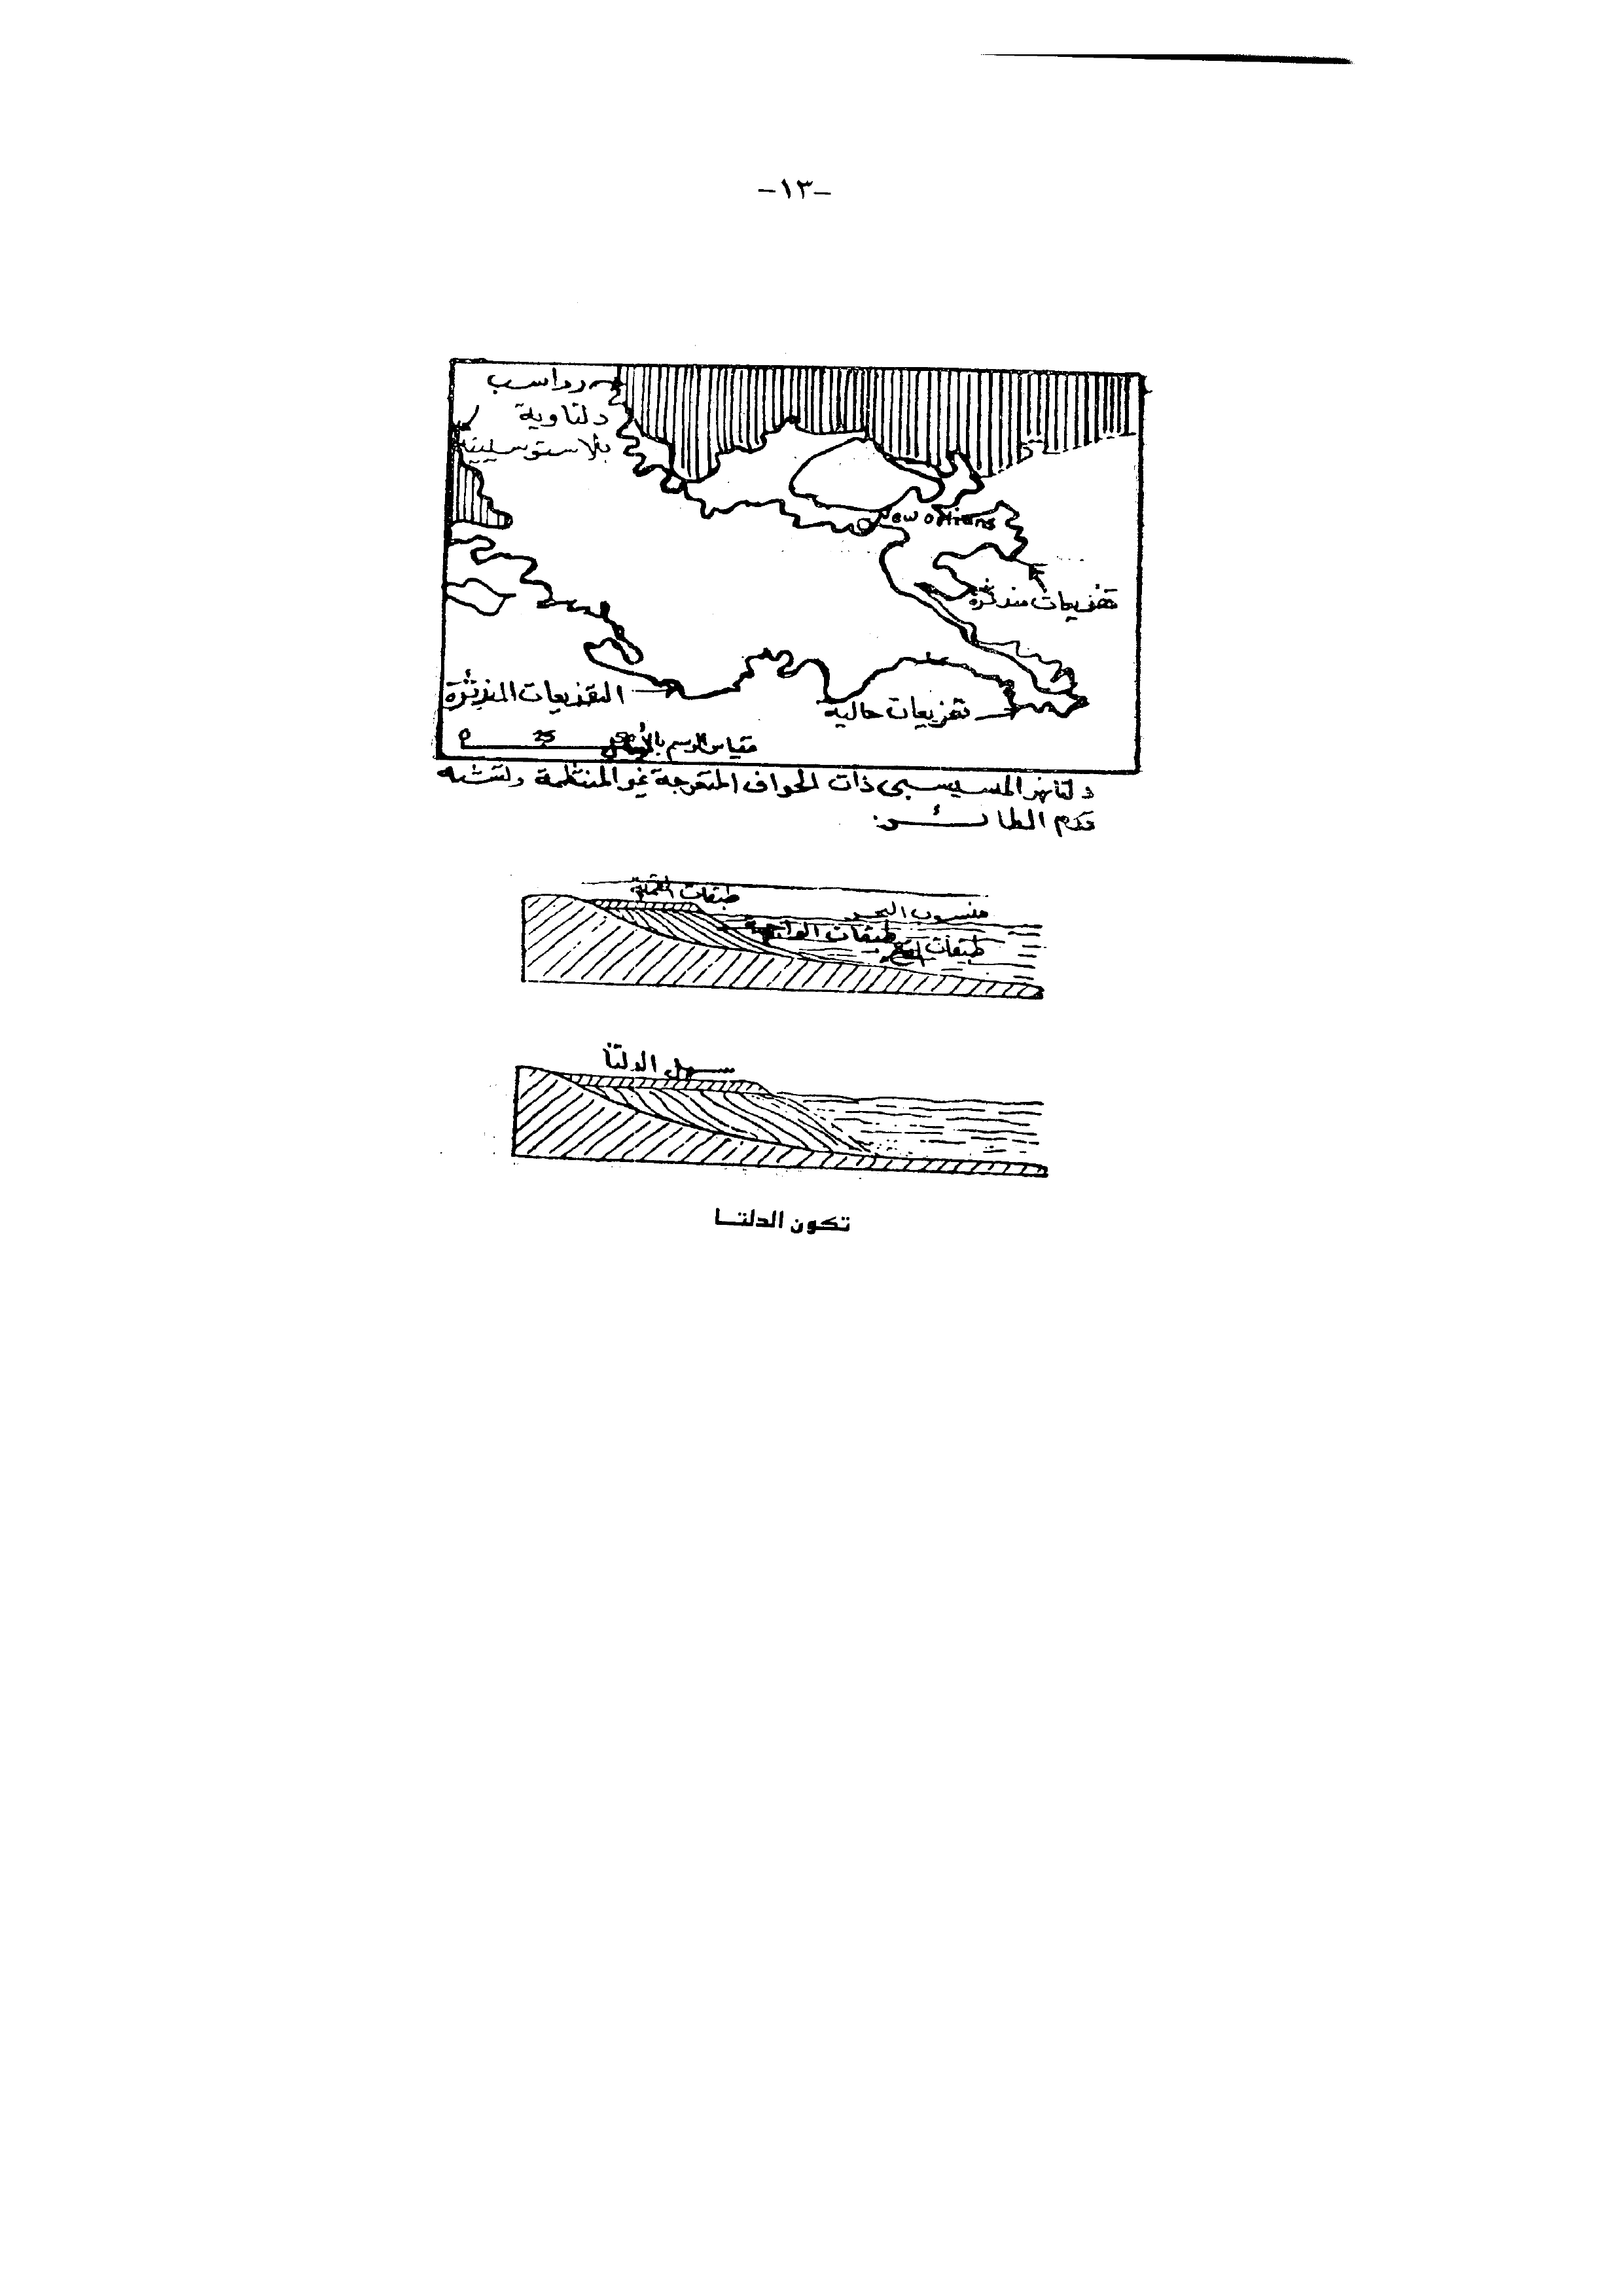 -١٣-
رواسب
دلتاوية
بلاستوسينية
New orlians
تفزيعات مندثرة
التفزيعات المندثرة
تفزيعات حالية
0 25 50 مقياس الرسم بالأميال
دلتا نهر المسيسبى ذات الحواف المتعرجة غير المنتظمة وتشبه
قدم الطائـــر.
طبقات القمة
منسوب البحر
طبقات
طبقات
سهل الدلتا
تكون الدلتــا